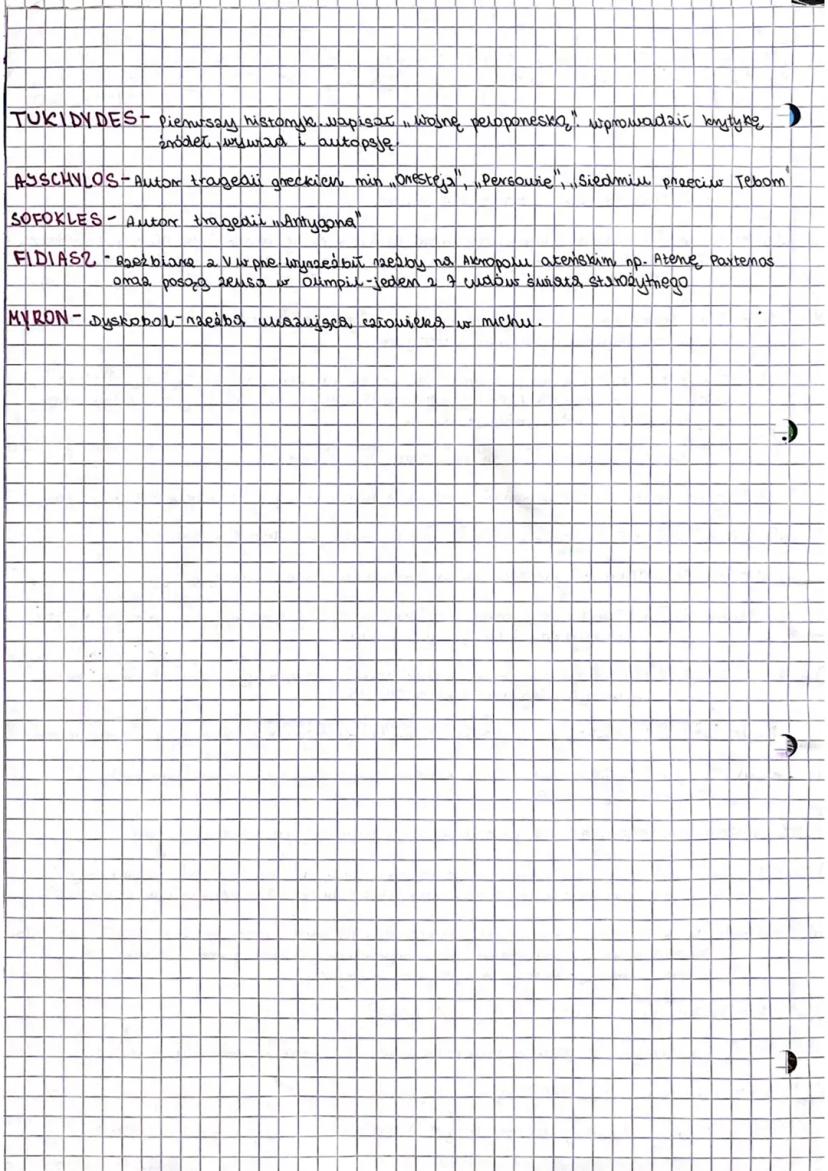 TUKIDYDES - Pierwszy historyk. napisał „Wojnę peloponeską". wprowadził krytykę
źródeł, wywiad i autopsję.
AJSCHYLOS - Autor tragedii greckich min „Oresteja", „Persowie", „Siedmiu przeciw Tebom"
SOFOKLES - Autor tragedii „Antygona"
FIDIASZ - Rzeźbiarz z V w pne wyrzeźbił rzeźby na Akropolu ateńskim np. Atenę Partenos
oraz posąg Zeusa w Olimpii - jeden z 7 cudów świata starożytnego
MYRON - Dyskobol - rzeźba ukazująca człowieka w ruchu.